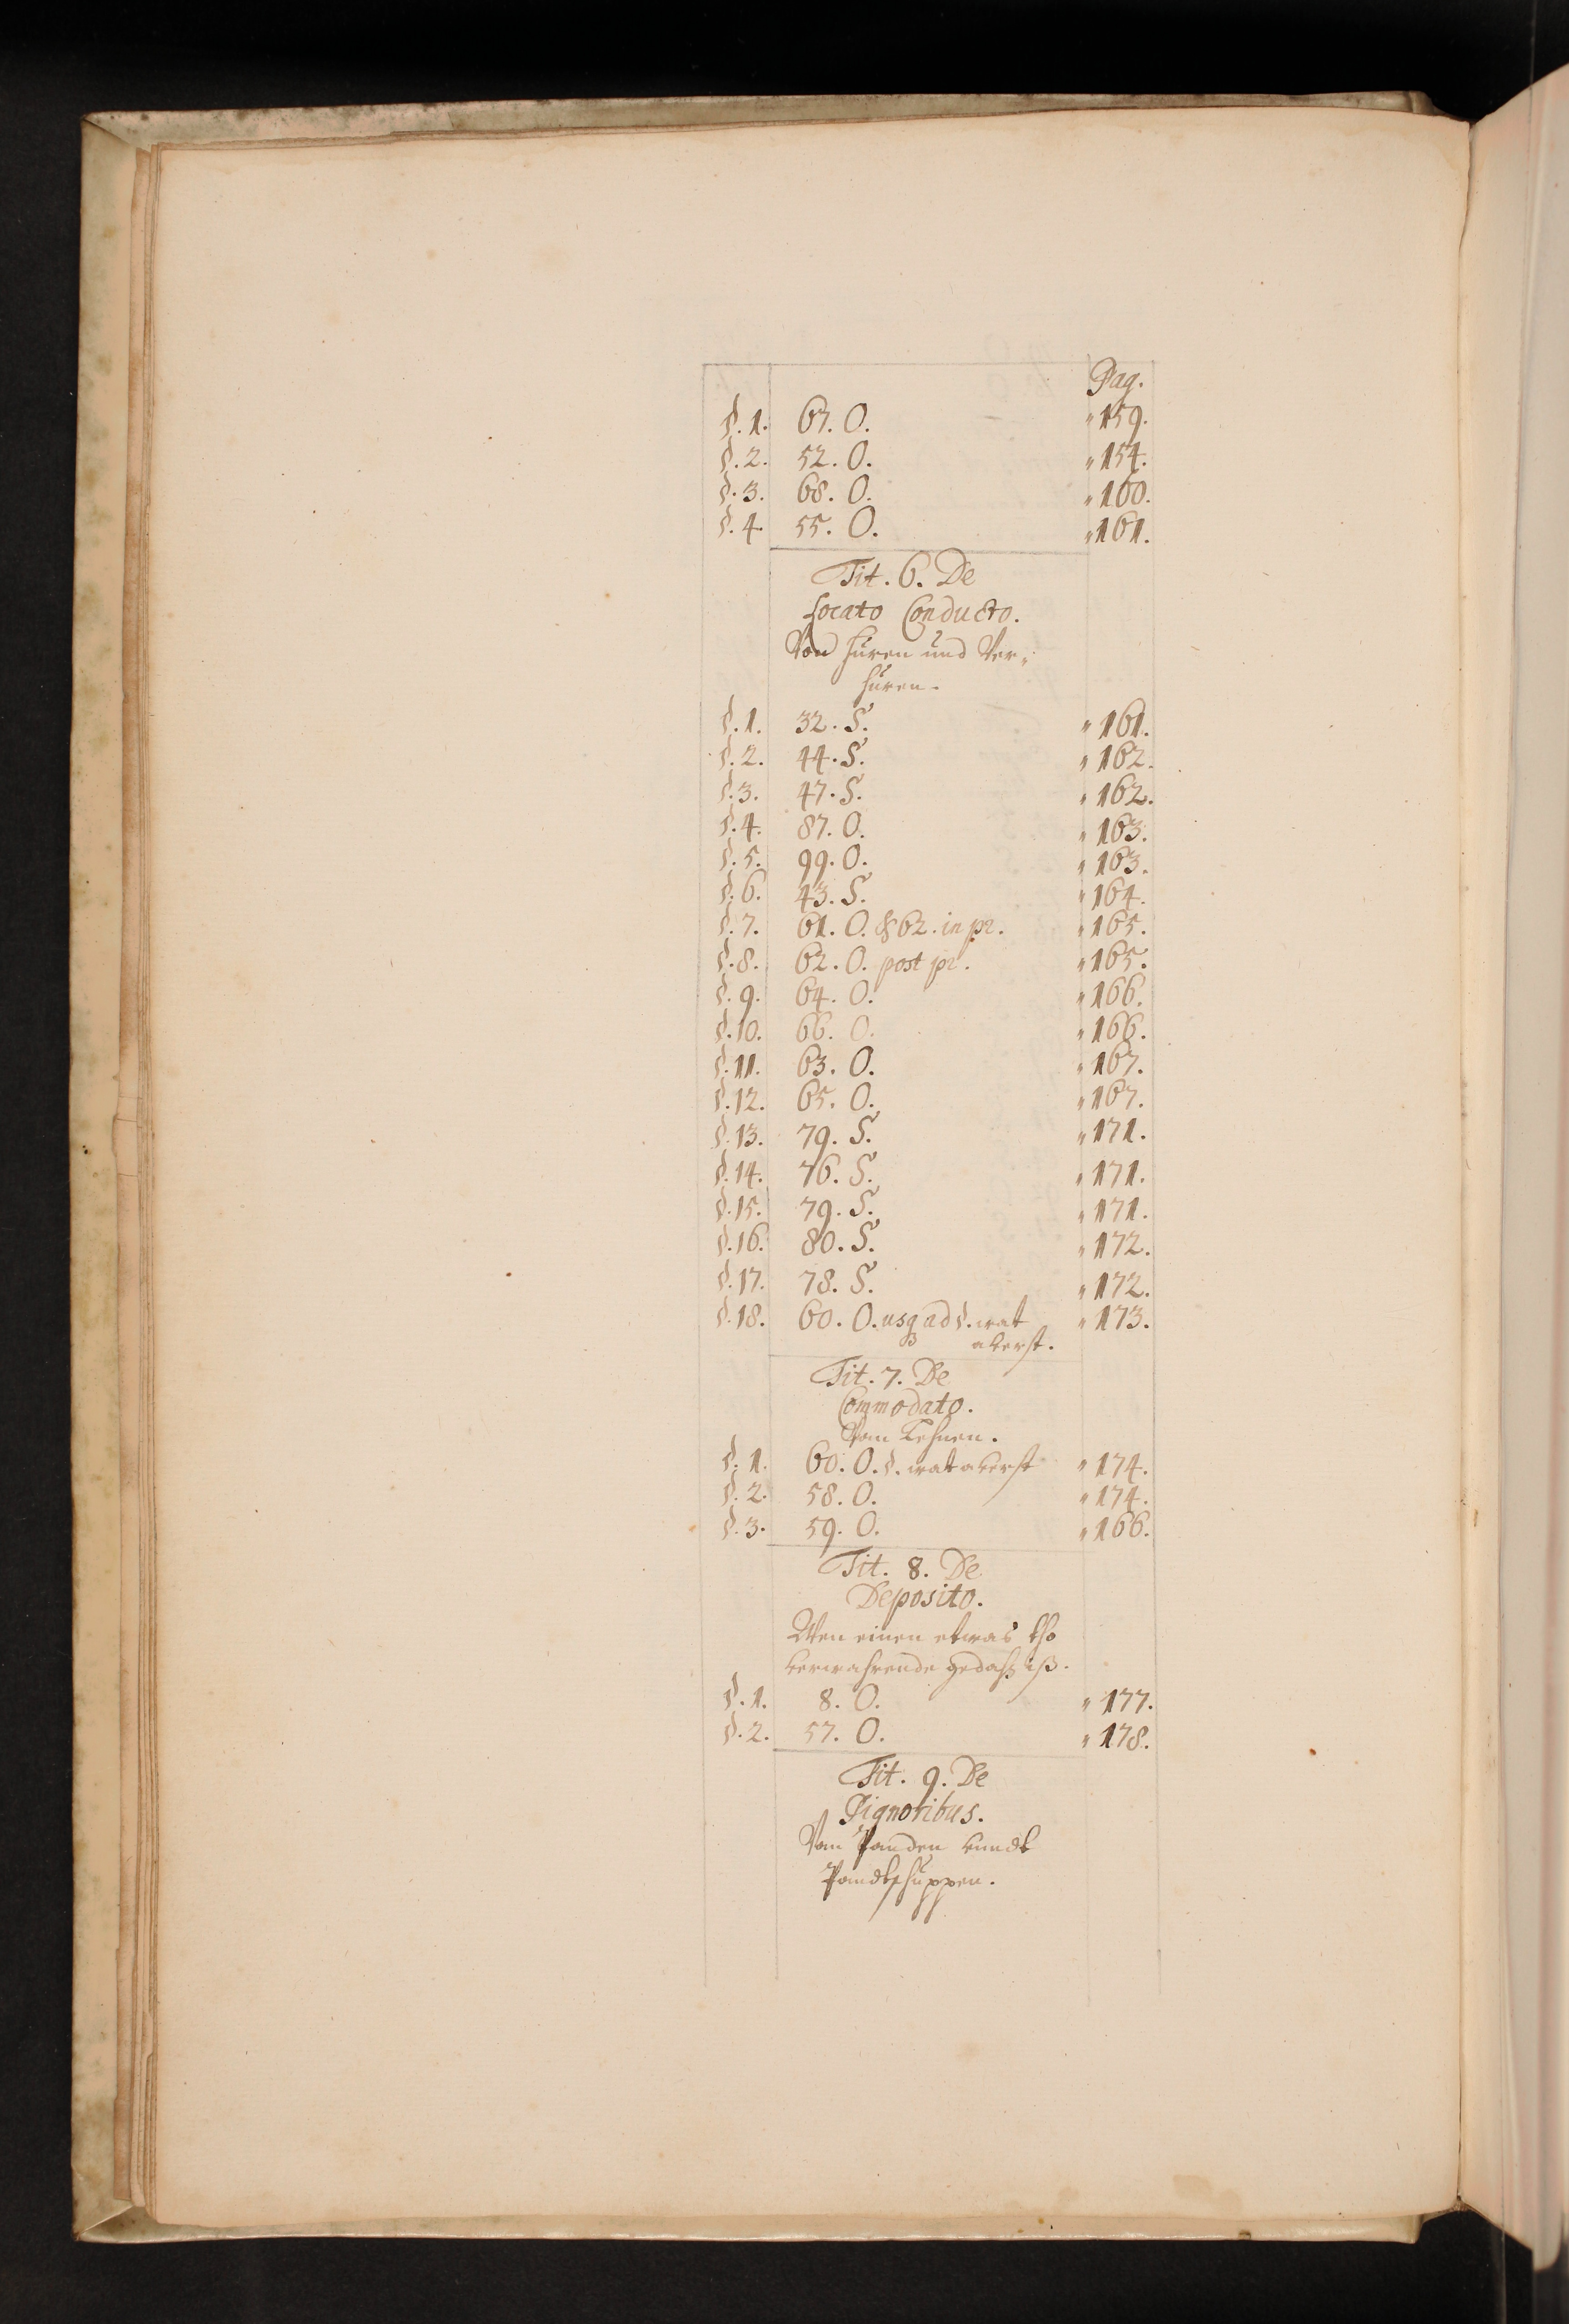 Pag.
§. 1. 67. O. " 159.
§. 2. 52. O. " 154.
§. 3. 68. O. " 160.
§. 4. 55. O. " 161.
Tit. 6. De
Locato Conducto.
Von Hüren und Ver„
hüren.
§. 1. 32. S. " 161.
§. 2. 44. S. " 162.
§. 3. 47. S. " 162.
§. 4. 87. O. " 163.
§. 5. 99. O. " 163.
§. 6. 43. S. " 164.
§. 7. 61. O. & 62. in pr. " 165.
§. 8. 62. O. post pr. " 165.
§. 9. 64. O. " 166.
§. 10. 66. O. " 166.
§. 11. 63. O. " 167.
§. 12. 65. O. " 167.
§. 13. 79. S. " 171.
§. 14. 76. S. " 171.
§. 15. 79. S. " 171.
§. 16. 80. S. " 172.
§. 17. 78. S. " 172.
§. 18. 60. O. usq ad §. wat " 173.
averst.
Tit. 7. De
Commodato.
Van Lehnen.
§. 1. 60. O. §. wat averst " 174.
§. 2. 58. O. " 174.
§. 3. 59. O. " 166.
Tit. 8. De
Deposito.
Wen einen etwas tho
verwahrende gedahn iß.
§. 1. 8. O. " 177.
§. 2. 57. O. " 178.
Tit. 9. De
Pignoribus.
Van Panden vundt